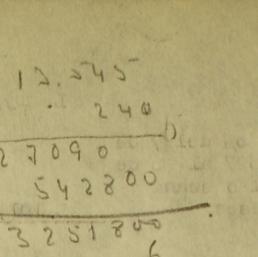 13.545
240
27090
542800
3251800
6